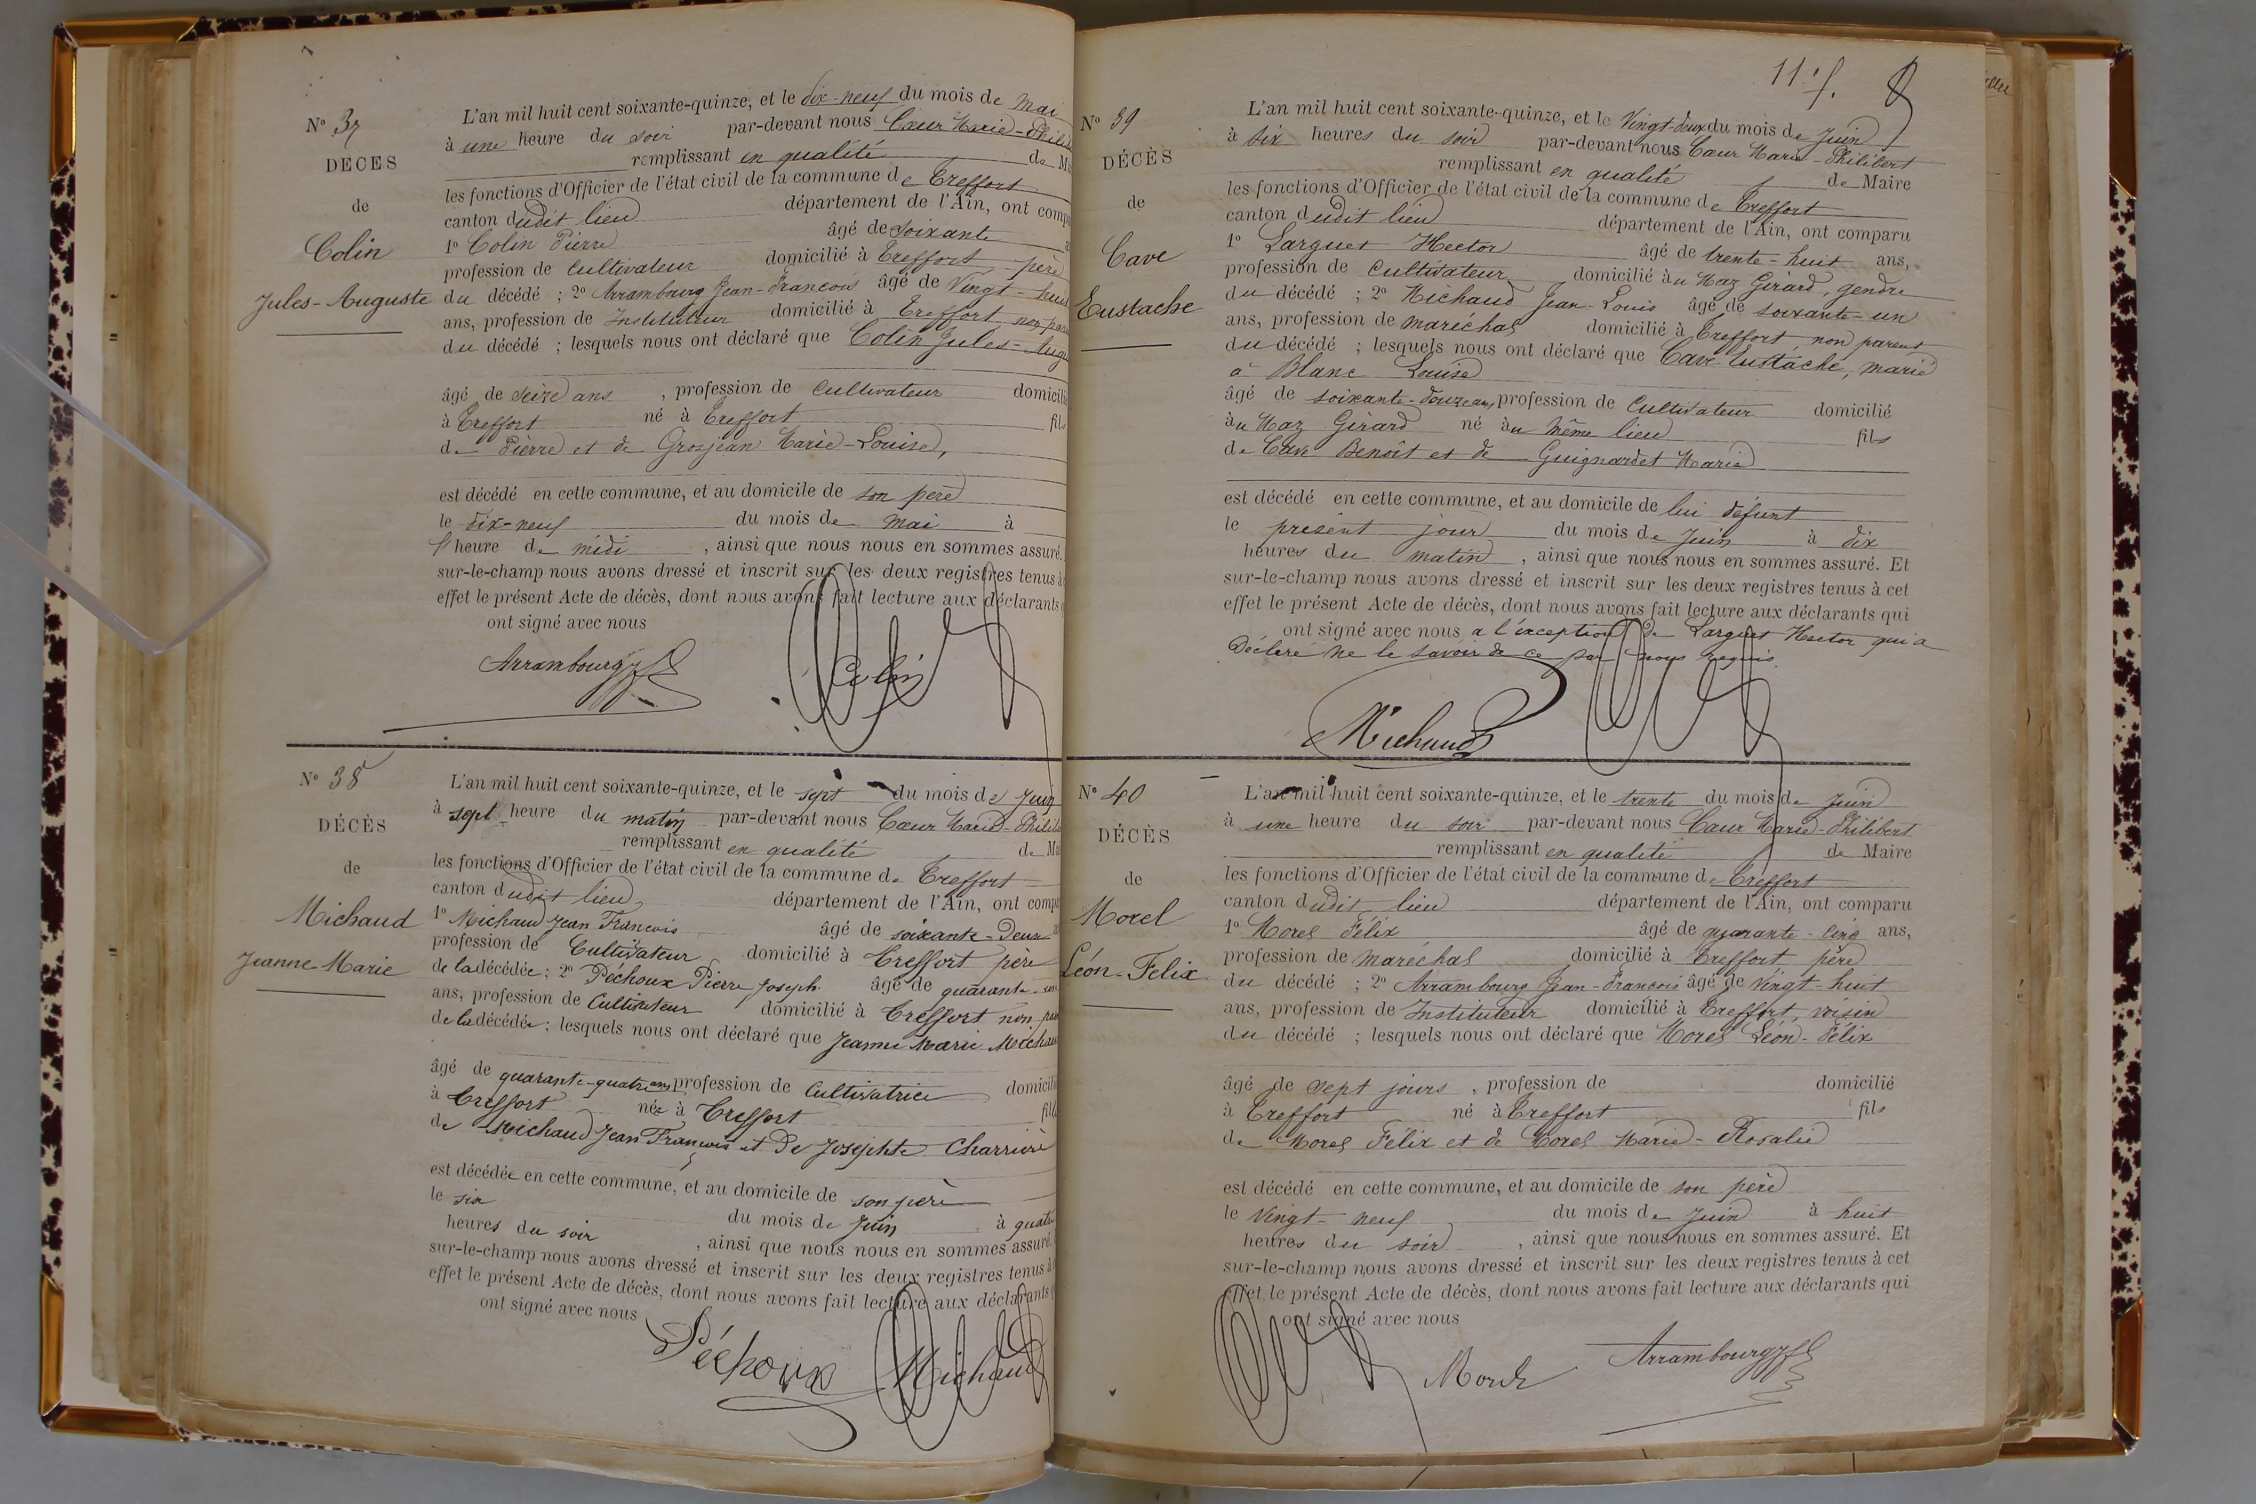 N° 37
DÉCÈS
de
Colin
Jules-Auguste
L'an mil huit cent soixante-quinze, et le dix-neuf du mois de Mai
à une heure du soir par-devant nous Cœur Marie-Philib
remplissant en qualité de M
les fonctions d'Officier de l'état civil de la commune de Treffort
canton dudit lieu département de l'Ain, ont comp
1° Colin Pierre âgé de soixante
profession de Cultivateur domicilié à Treffort père
du décédé ; 2° Arrambourg Jean-François âgé de Vingt-huit
ans, profession de Instituteur domicilié à Treffort non par
du décédé ; lesquels nous ont déclaré que Colin Jules-Aug
âgé de seize ans , profession de Cultivateur domicilié
à Treffort né à Treffort fils
de Pierre et de Grosjean Marie-Louise,
est décédé en cette commune, et au domicile de son père
le dix-neuf du mois de mai à
heure de midi , ainsi que nous nous en sommes assuré.
sur-le-champ nous avons dressé et inscrit sur les deux registres tenus à
effet le présent Acte de décès, dont nous avons fait lecture aux déclarants
ont signé avec nous
Arrambourg Colin
N° 38
DÉCÈS
de
Michaud
Jeanne-Marie
L'an mil huit cent soixante-quinze, et le sept du mois de Juin
à sept heure du matin par-devant nous Cœur Marie-Philib
remplissant en qualité de Ma
les fonctions d'Officier de l'état civil de la commune de Treffort
canton dudit lieu département de l'Ain, ont comp
1° Michaud Jean François âgé de soixante-Deux
profession de Cultivateur domicilié à Treffort père
de la décédée ; 2° Péchoux Pierre Joseph âgé de quarante-un
ans, profession de Cultivateur domicilié à Treffort non par
de la décédée ; lesquels nous ont déclaré que Jeanne Marie Michau
âgé de quarante-quatre ans profession de Cultivatrice domicili
à Treffort née à Treffort fil
de Michaud Jean François et De Josephte Charrière
est décédée en cette commune, et au domicile de son père
le six du mois de Juin à quatre
heures du soir , ainsi que nous nous en sommes assuré.
sur-le-champ nous avons dressé et inscrit sur les deux registres tenus à
effet le présent Acte de décès, dont nous avons fait lecture aux déclarants
ont signé avec nous
Péchoux Michaud
11e f.
N° 39
DÉCÈS
de
Cave
Eustache
L'an mil huit cent soixante-quinze, et le Vingt-deux du mois de Juin
à six heures du soir par-devant nous Cœur Marie-Philibert
remplissant en qualité de Maire
les fonctions d'Officier de l'état civil de la commune de Treffort
canton dudit lieu département de l'Ain, ont comparu
1° Larguet Hector âgé de trente-huit ans,
profession de Cultivateur domicilié au Maz Girard, gendre
du décédé ; 2° Michaud Jean-Louis âgé de soixante-un
ans, profession de maréchal domicilié à Treffort, non parent
du décédé ; lesquels nous ont déclaré que Cave Eustache, marié
à Blanc Louise
âgé de soixante-douze ans, profession de Cultivateur domicilié
au Maz Girard né au même lieu fils
de Cave Benoît et de Guignardet Marie
est décédé en cette commune, et au domicile de lui défunt
le présent jour du mois de Juin à dix
heures du matin , ainsi que nous nous en sommes assuré. Et
sur-le-champ nous avons dressé et inscrit sur les deux registres tenus à cet
effet le présent Acte de décès, dont nous avons fait lecture aux déclarants qui
ont signé avec nous a l'exception de Larguet Hector qui a
Déclaré ne le savoir de ce par nous requis.
Michaud
N° 40
DÉCÈS
de
Morel
Léon-Felix
L'an mil huit cent soixante-quinze, et le trente du mois de Juin
à une heure du soir par-devant nous Cœur Marie-Philibert
remplissant en qualité de Maire
les fonctions d'Officier de l'état civil de la commune de Treffort
canton dudit lieu département de l'Ain, ont comparu
1° Morel Félix âgé de quarante-cinq ans,
profession de maréchal domicilié à Treffort père
du décédé ; 2° Arrambourg Jean-François âgé de Vingt-huit
ans, profession de Instituteur domicilié à Treffort, voisin
du décédé ; lesquels nous ont déclaré que Morel Léon-Félix
âgé de sept jours , profession de domicilié
à Treffort né à Treffort fils
de Morel Félix et de Morel Marie-Rosalie
est décédé en cette commune, et au domicile de son père
le Vingt-neuf du mois de Juin à huit
heures du soir , ainsi que nous nous en sommes assuré. Et
sur-le-champ nous avons dressé et inscrit sur les deux registres tenus à cet
effet le présent Acte de décès, dont nous avons fait lecture aux déclarants qui
ont signé avec nous
Morel Arrambourg